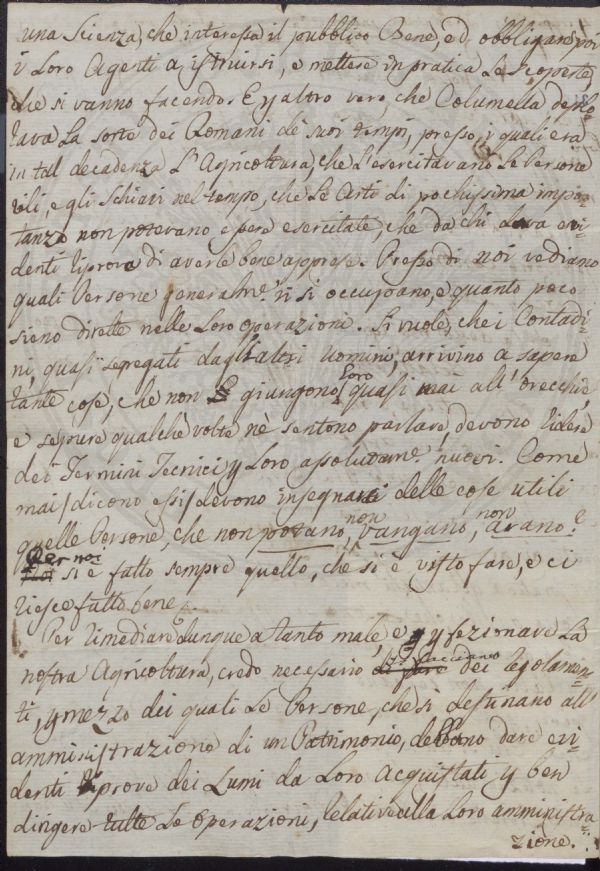 una Scienza, che interessa il pubblico Bene, ed obbligarvi
i Loro Agenti a istruirsi, e mettere in pratica Le scoperte
che si vanno facendo. E y altro vero, che Columella deplo=
rava La sorte dei Romani de' suoi tempi, presso i quali era
in tal decadenza L'Agricoltura, che L'esercitavano Le Persone
vili, e gli Schiavi nel tempo, che Le Arti di pochissima impor=
tanza non potevano essere esercitate, che da chi dava evi=
denti riprove di averle bene apprese. Presso di noi vediamo
quali Persone generalm.e vi si occupano, e quanto poco
sieno dirette nelle Loro operazioni. Si vuole, che i Contadi=
ni, quasi segregati dagl'altri uomini, arrivino a sapere
tante cose, che non giungono Loro quasi mai all'orecchie,
e seppure qualche volta nè sentono parlare, devono ridere
dei Termini Tecnici y Loro assolutam.e nuovi. Come
mai / dicono essi / devono insegnarci delle cose utili
quelle Persone, che non potano, non vangano, non arano?
Per noi si è fatto sempre quello, che si è visto fare, e ci
riesce fatto bene.
Per rimediare dunque a tanto male, e y yfezionare La
nostra Agricoltura, credo necessario si facciano dei regolamen=
ti, y mezzo dei quali Le Persone, che si destinano all'
amministrazione di un Patrimonio, debbano dare evi=
denti riprove dei Lumi da Loro acquistati y ben
dirigere tutte Le operazioni, relative alla Loro amministra
zione.